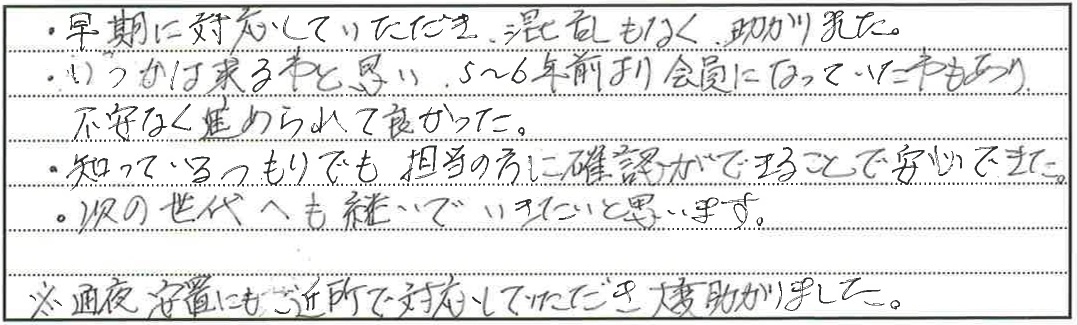 ・早期に対応していただき、混乱もなく、助かりました。
・いつかは来る事と思い、5〜6年前より会員になっていた事もあり、
不安なく進められて良かった。
・知っているつもりでも担当の方に確認ができることで安心できた。
・次の世代へも継いでいきたいと思います。
※通夜、安置にもご近所で対応していただき大変助かりました。